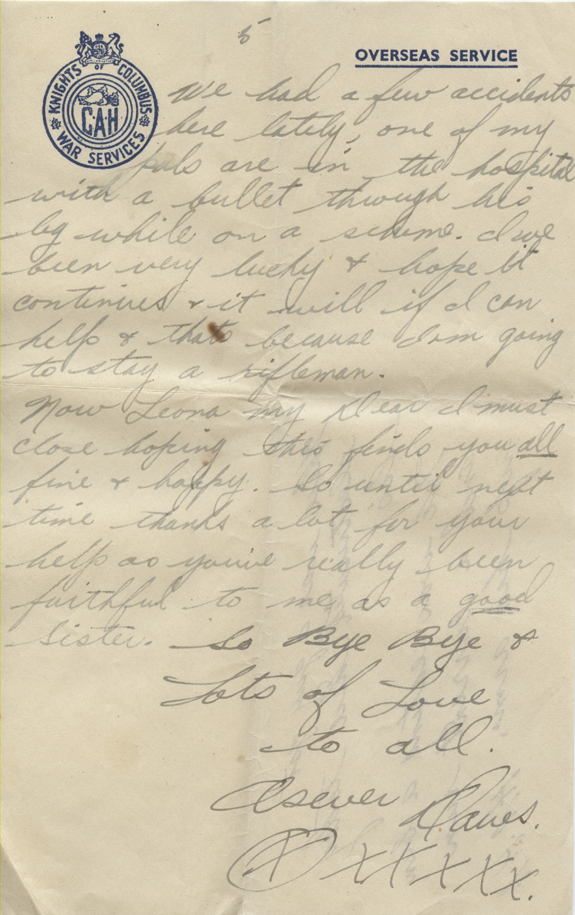 5
OVERSEAS SERVICE
KNIGHTS OF COLUMBUS
CAH
WAR SERVICES
We had a few accidents
here lately, one of my
pals are in the hospital
with a bullet through his
leg while on a scheme. I've
been very lucky & hope it
continues & it will if I can
help & thats because I am going
to stay a rifleman.
Now Leona my Dear I must
close hoping this finds you all
fine & happy. So until next
time thanks a lot for your
help as you've really been
faithful to me as a good
sister. So Bye Bye &
Lots of Love
to all.
Asever
X XXXXX.